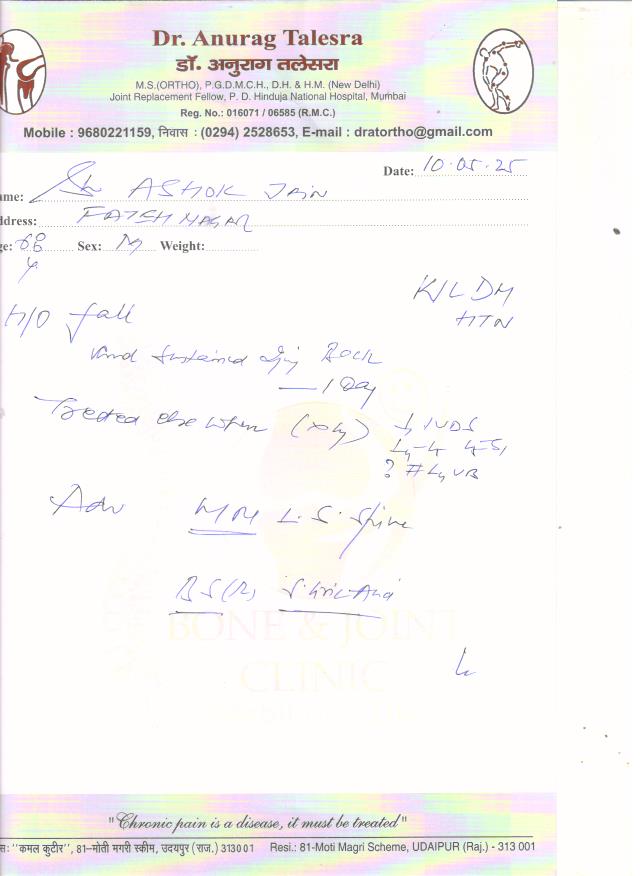 Dr. Anurag Talesra
डॉ. अनुराग तलेसरा
M.S.(ORTHO), P.G.D.M.C.H., D.H. & H.M. (New Delhi)
Joint Replacement Fellow, P. D. Hinduja National Hospital, Mumbai
Reg. No.: 016071 / 06585 (R.M.C.)
Mobile : 9680221159, निवास : (0294) 2528653, E-mail : dratortho@gmail.com
Date: 10.05.25
ame: Sh ASHOK JAIN
ddress: FATEH NAGAR
ge: 68 Sex: M Weight:
y
K/C DM
HTN
H/O fall
and sustained inj Back
— 1 Day
Treated else where (xry) ↓ IVDS
L4-L5 L5-S1
? # L4 VB
Adv MRI L.S. Spine
BS(R) S. Uric Acid
BONE & JOINT
CLINIC
"Chronic pain is a disease, it must be treated"
सः "कमल कुटीर", 81–मोती मगरी स्कीम, उदयपुर (राज.) 313001 Resi.: 81-Moti Magri Scheme, UDAIPUR (Raj.) - 313 001